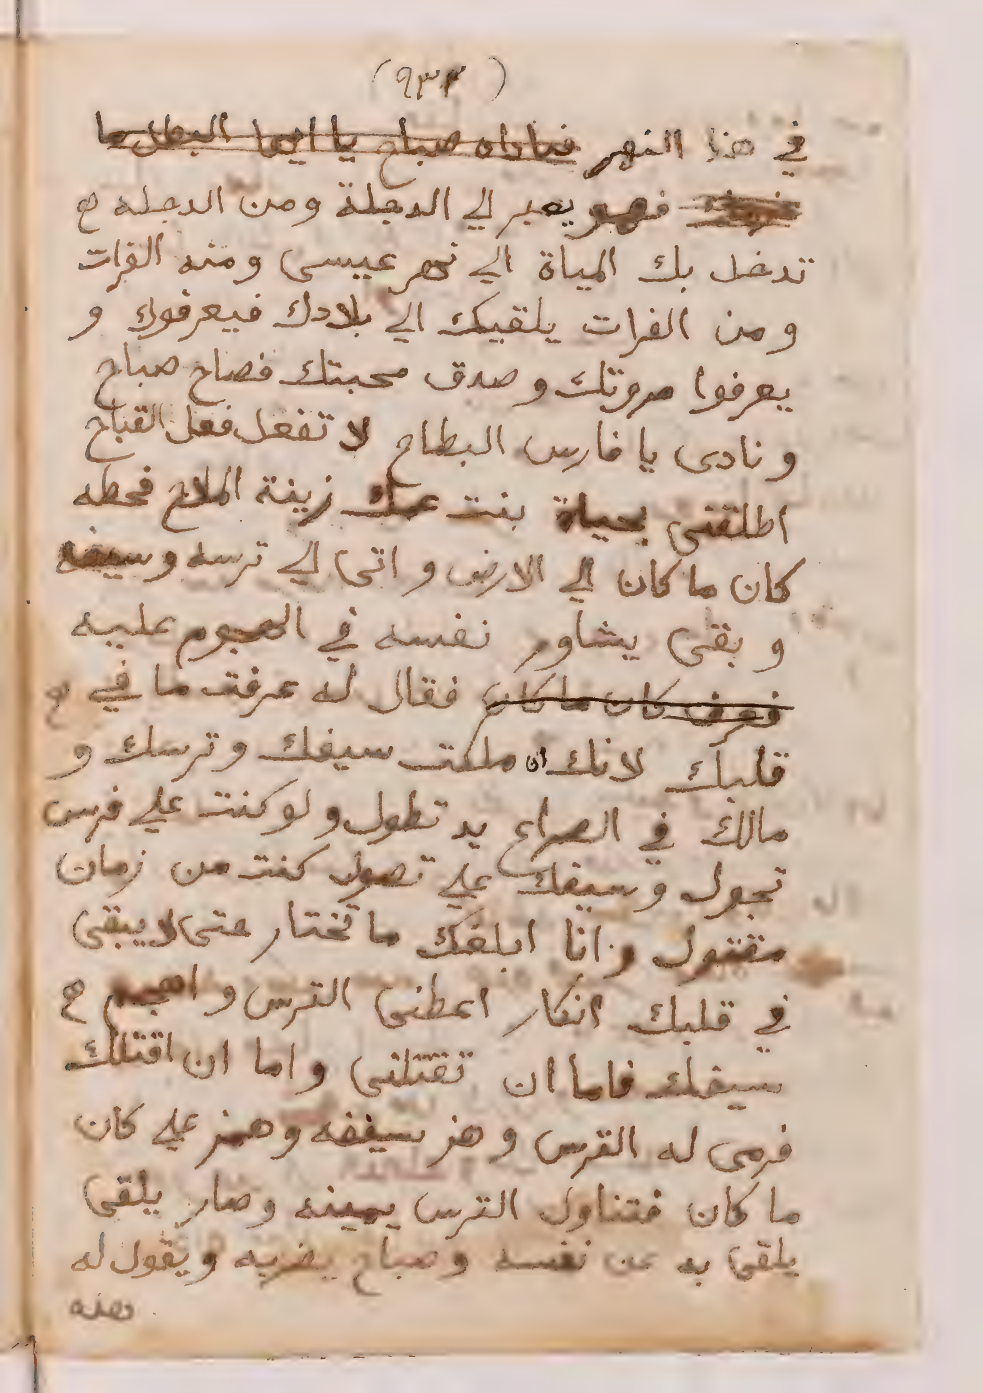 (٩٣٣)
في هذا النهر فناداه صباح يا ايها البطل ما
فهو يعبر الي الدجلة ومن الدجله ح
تدخل بك المياة الي نهر عيسى ومنه الفرات
ومن الفرات يلقيك الي بلادك فيعرفوك و
يعرفوا مروتك وصدق محبتك فصاح صباح
ونادى يا فارس البطاح لا تفعل فعل القباح
اطلقني بحياة بنت عمك زينة الملاح فحطه
كان ما كان الي الارض واتى الي ترسه وسيفه
وبقى يشاور نفسه في الهجوم عليه
فعرف كان ما كان فقال له عرفت ما في ح
قلبك لانك ان ملكت سيفك وترسك و
مالك في الصراع يد تطول ولو كنت علي فرس
تجول وسيفك علي تصول كنت من زمان
مقتول وانا ابلغك ما تختار حتى لا يبقى
في قلبك انكار اعطنى الترس واهجم ح
بسيفك فاما ان تقتلنى واما ان اقتلك
فرمى له الترس وهز سيفه وهمز علي كان
ما كان فتناول الترس بيمينه وصار يلقى
يلقى به عن نفسه وصباح يضربه ويقول له
هذه